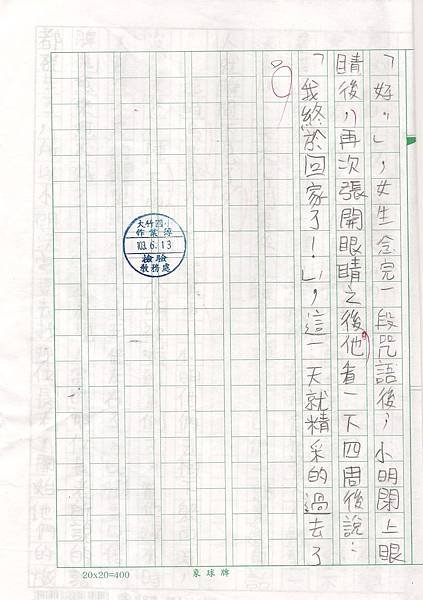 「好。」，女生念完一段咒語後，小明閉上眼
睛後，再次張開眼睛之後他看一下四周後說：
「我終於回家了！」，這一天就精采的過去了
。
大竹國小
作業簿
103.6.13
檢驗
教務處
20x20=400
象球牌